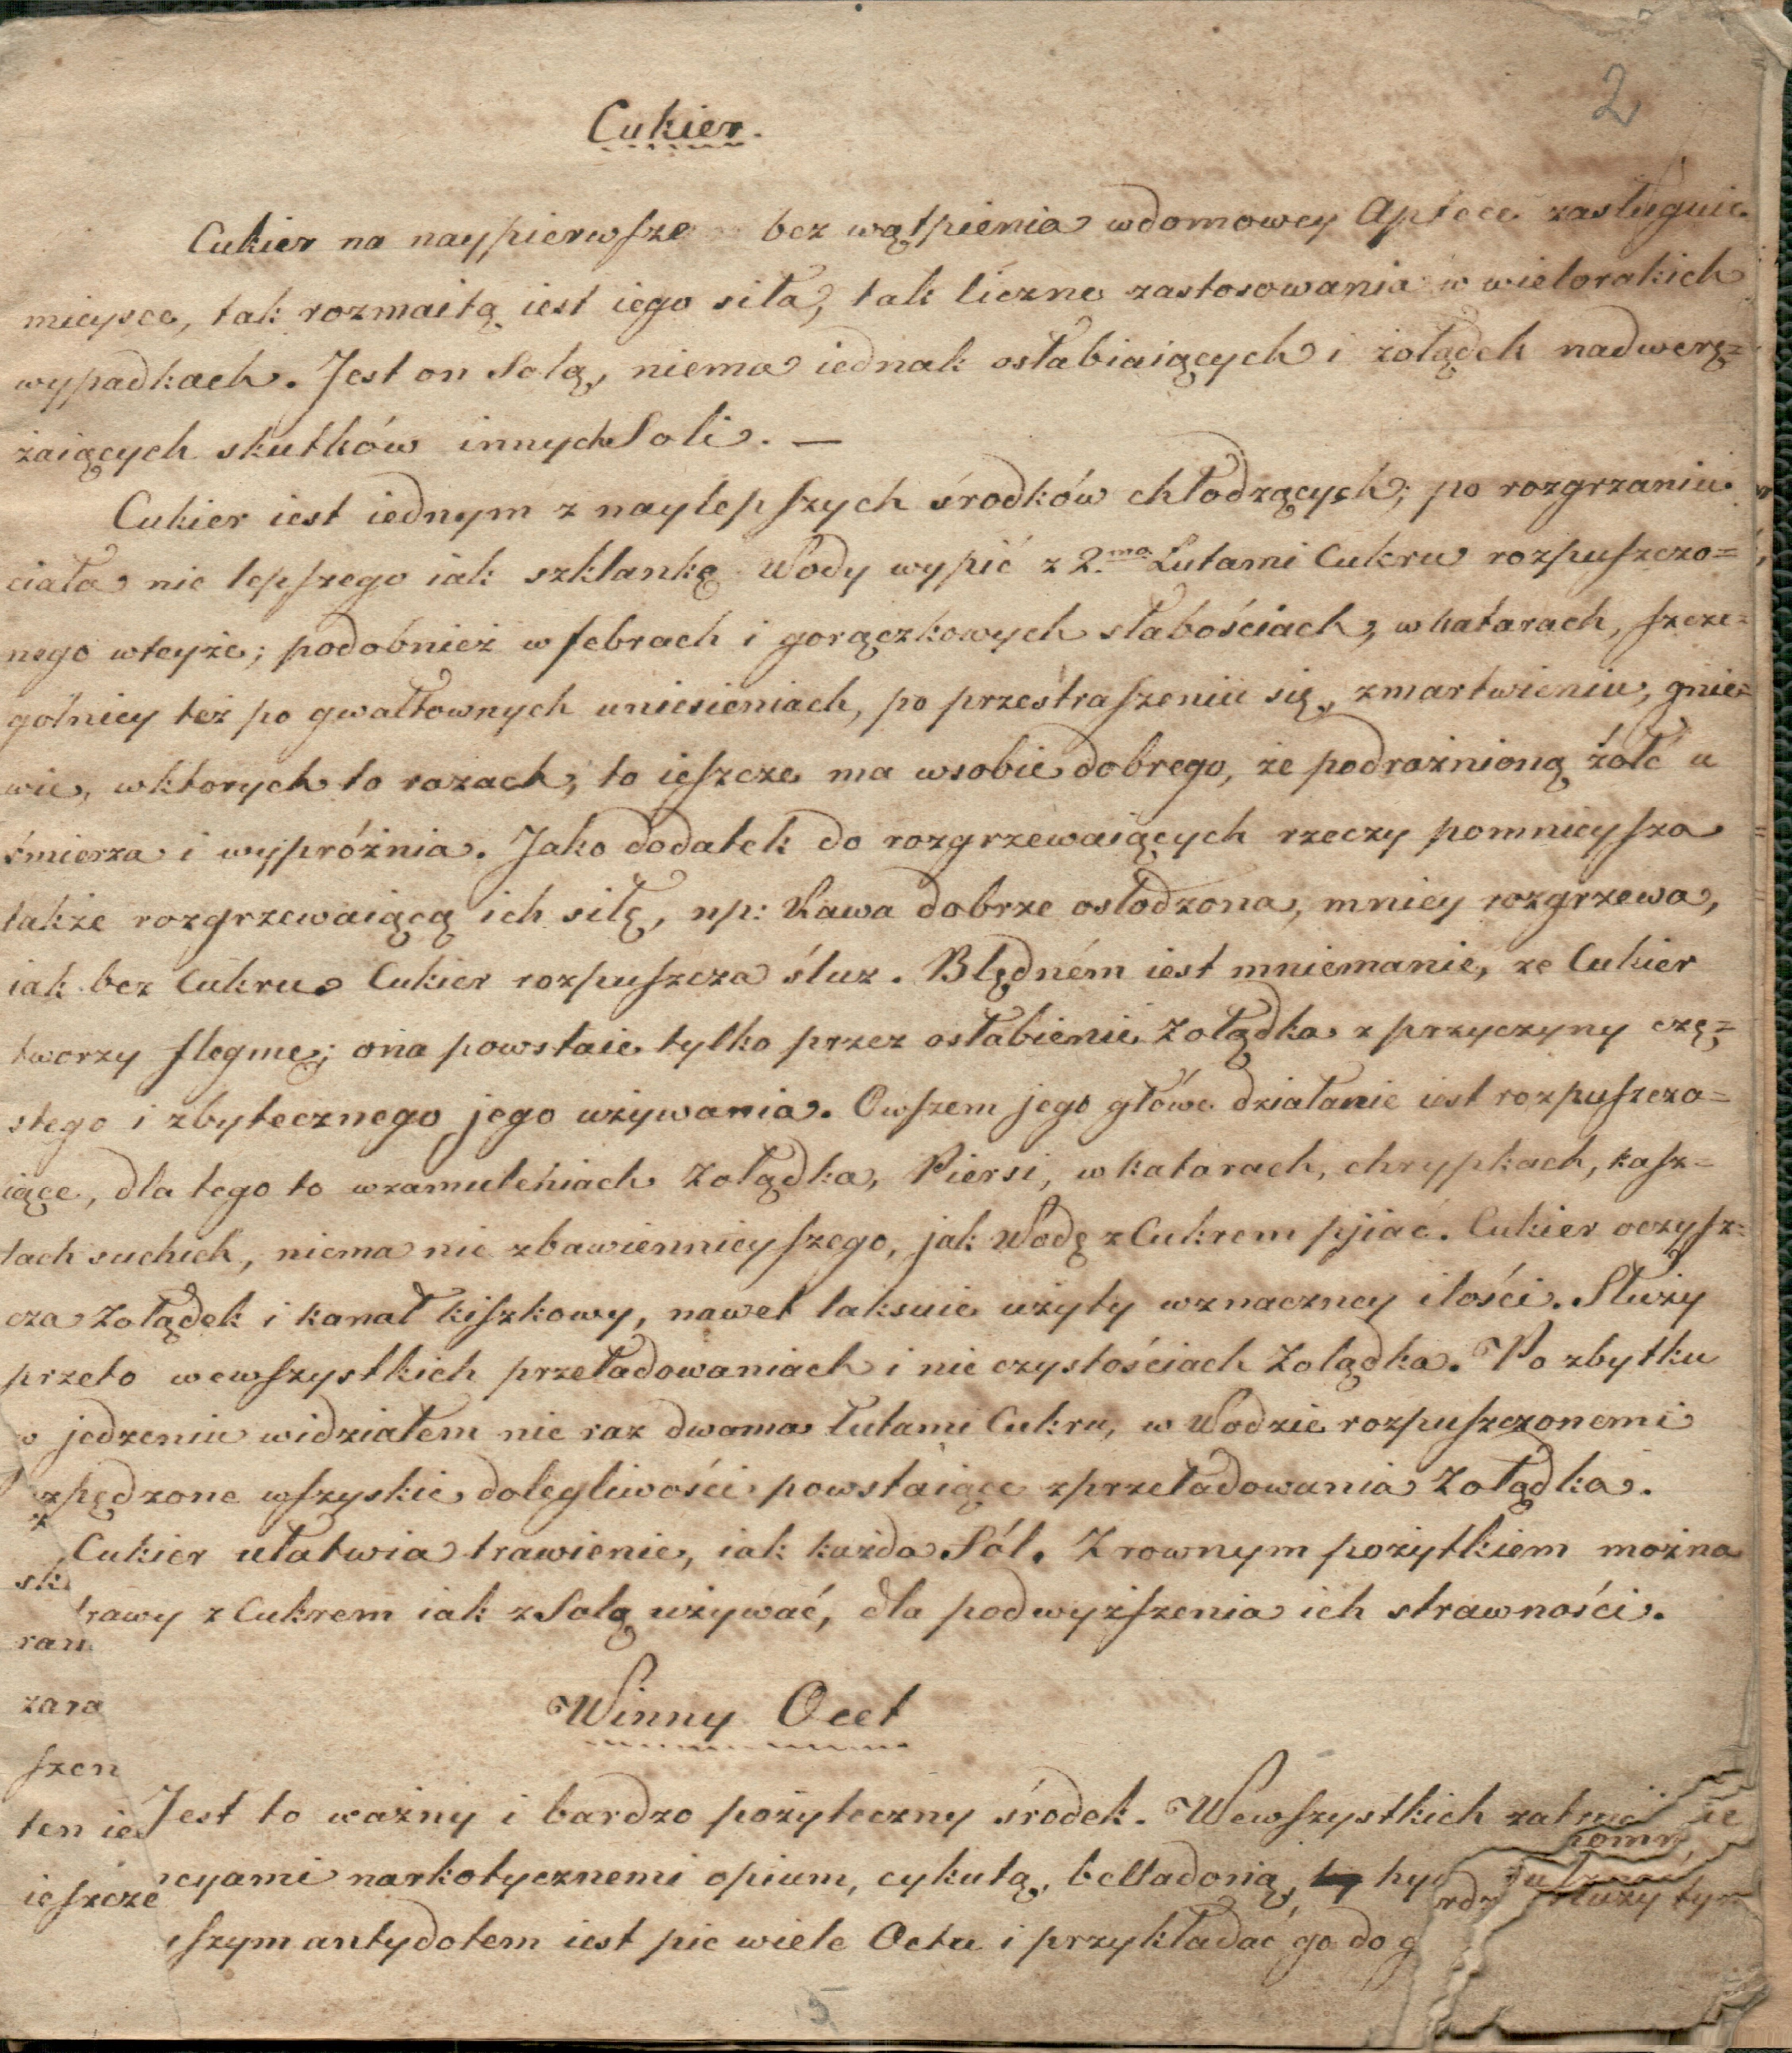 2
Cukier.
Cukier na naypierwsze bez wątpienia wdomowey Aptece zasługuie
mieysce, tak rozmaitą iest iego siła, tak liczne zastosowania w wielorakich
wypadkach. Jest on Solą, niema iednak osłabiaiących i żołądek nadwerę=
żaiących skutków innych Soli. —
Cukier iest iednym z naylepszych środków chłodzących; po rozgrzaniu
ciała nic lepszego iak szklankę Wody wypić z 2.ma Lutami Cukru rozpuszczo=
nego wteyże; podobnież w febrach i gorączkowych słabościach, w katarach, szcze=
golniey też po gwałtownych uniesieniach, po przestraszeniu się, zmartwieniu, gnie=
wie, wktorych to razach, to ieszcze ma wsobie dobrego, że podrażnioną żółć u
śmierza i wypróżnia. Jako dodatek do rozgrzewaiących rzeczy pomnieysza
także rozgrzewaiącą ich siłę, np: Kawa dobrze osłodzona, mniey rozgrzewa,
iak bez Cukru. Cukier rozpuszcza śluz. Błędném iest mniemanie, ze Cukier
tworzy flegmę; ona powstaie tylko przez osłabienie Zołądka z przyczyny czę=
stego i zbytecznego jego używania. Owszem jego główe działanie iest rozpuszcza=
iące, dla tego to wzamuleniach Zołądka, Piersi, w katarach, chrypkach, kasz=
lach suchich, niema nic zbawiennieyszego, jak Wodę z Cukrem pijać. Cukier oczysz=
cza Zołądek i kanał kiszkowy, nawet laksuie użyty wznaczney ilości. Służy
przeto wewszystkich przeładowaniach i nie czystościach Zolądka. Po zbytku
w jedzeniu widziałem nie raz dwoma łutami Cukru, w Wodzie rozpuszczonemi
zpędzone wszyskie dolegliwości powstaiące zprzeładowania Zołądka.
Cukier ułatwia trawienie, iak każda Sól. Z rownym pożytkiem można
trawy z Cukrem iak z Solą używać, dla podwyższenia ich strawności.
sk
ran
zara
szen
ten ie
ieszcze
Winny Ocet
Jest to ważny i bardzo pożyteczny środek. Wewszystkich
cyami narkotycznemi opium, cykutą, belladoną, hy
szym antydotem iest pic wiele Octu i przykładać go do g
służy
5